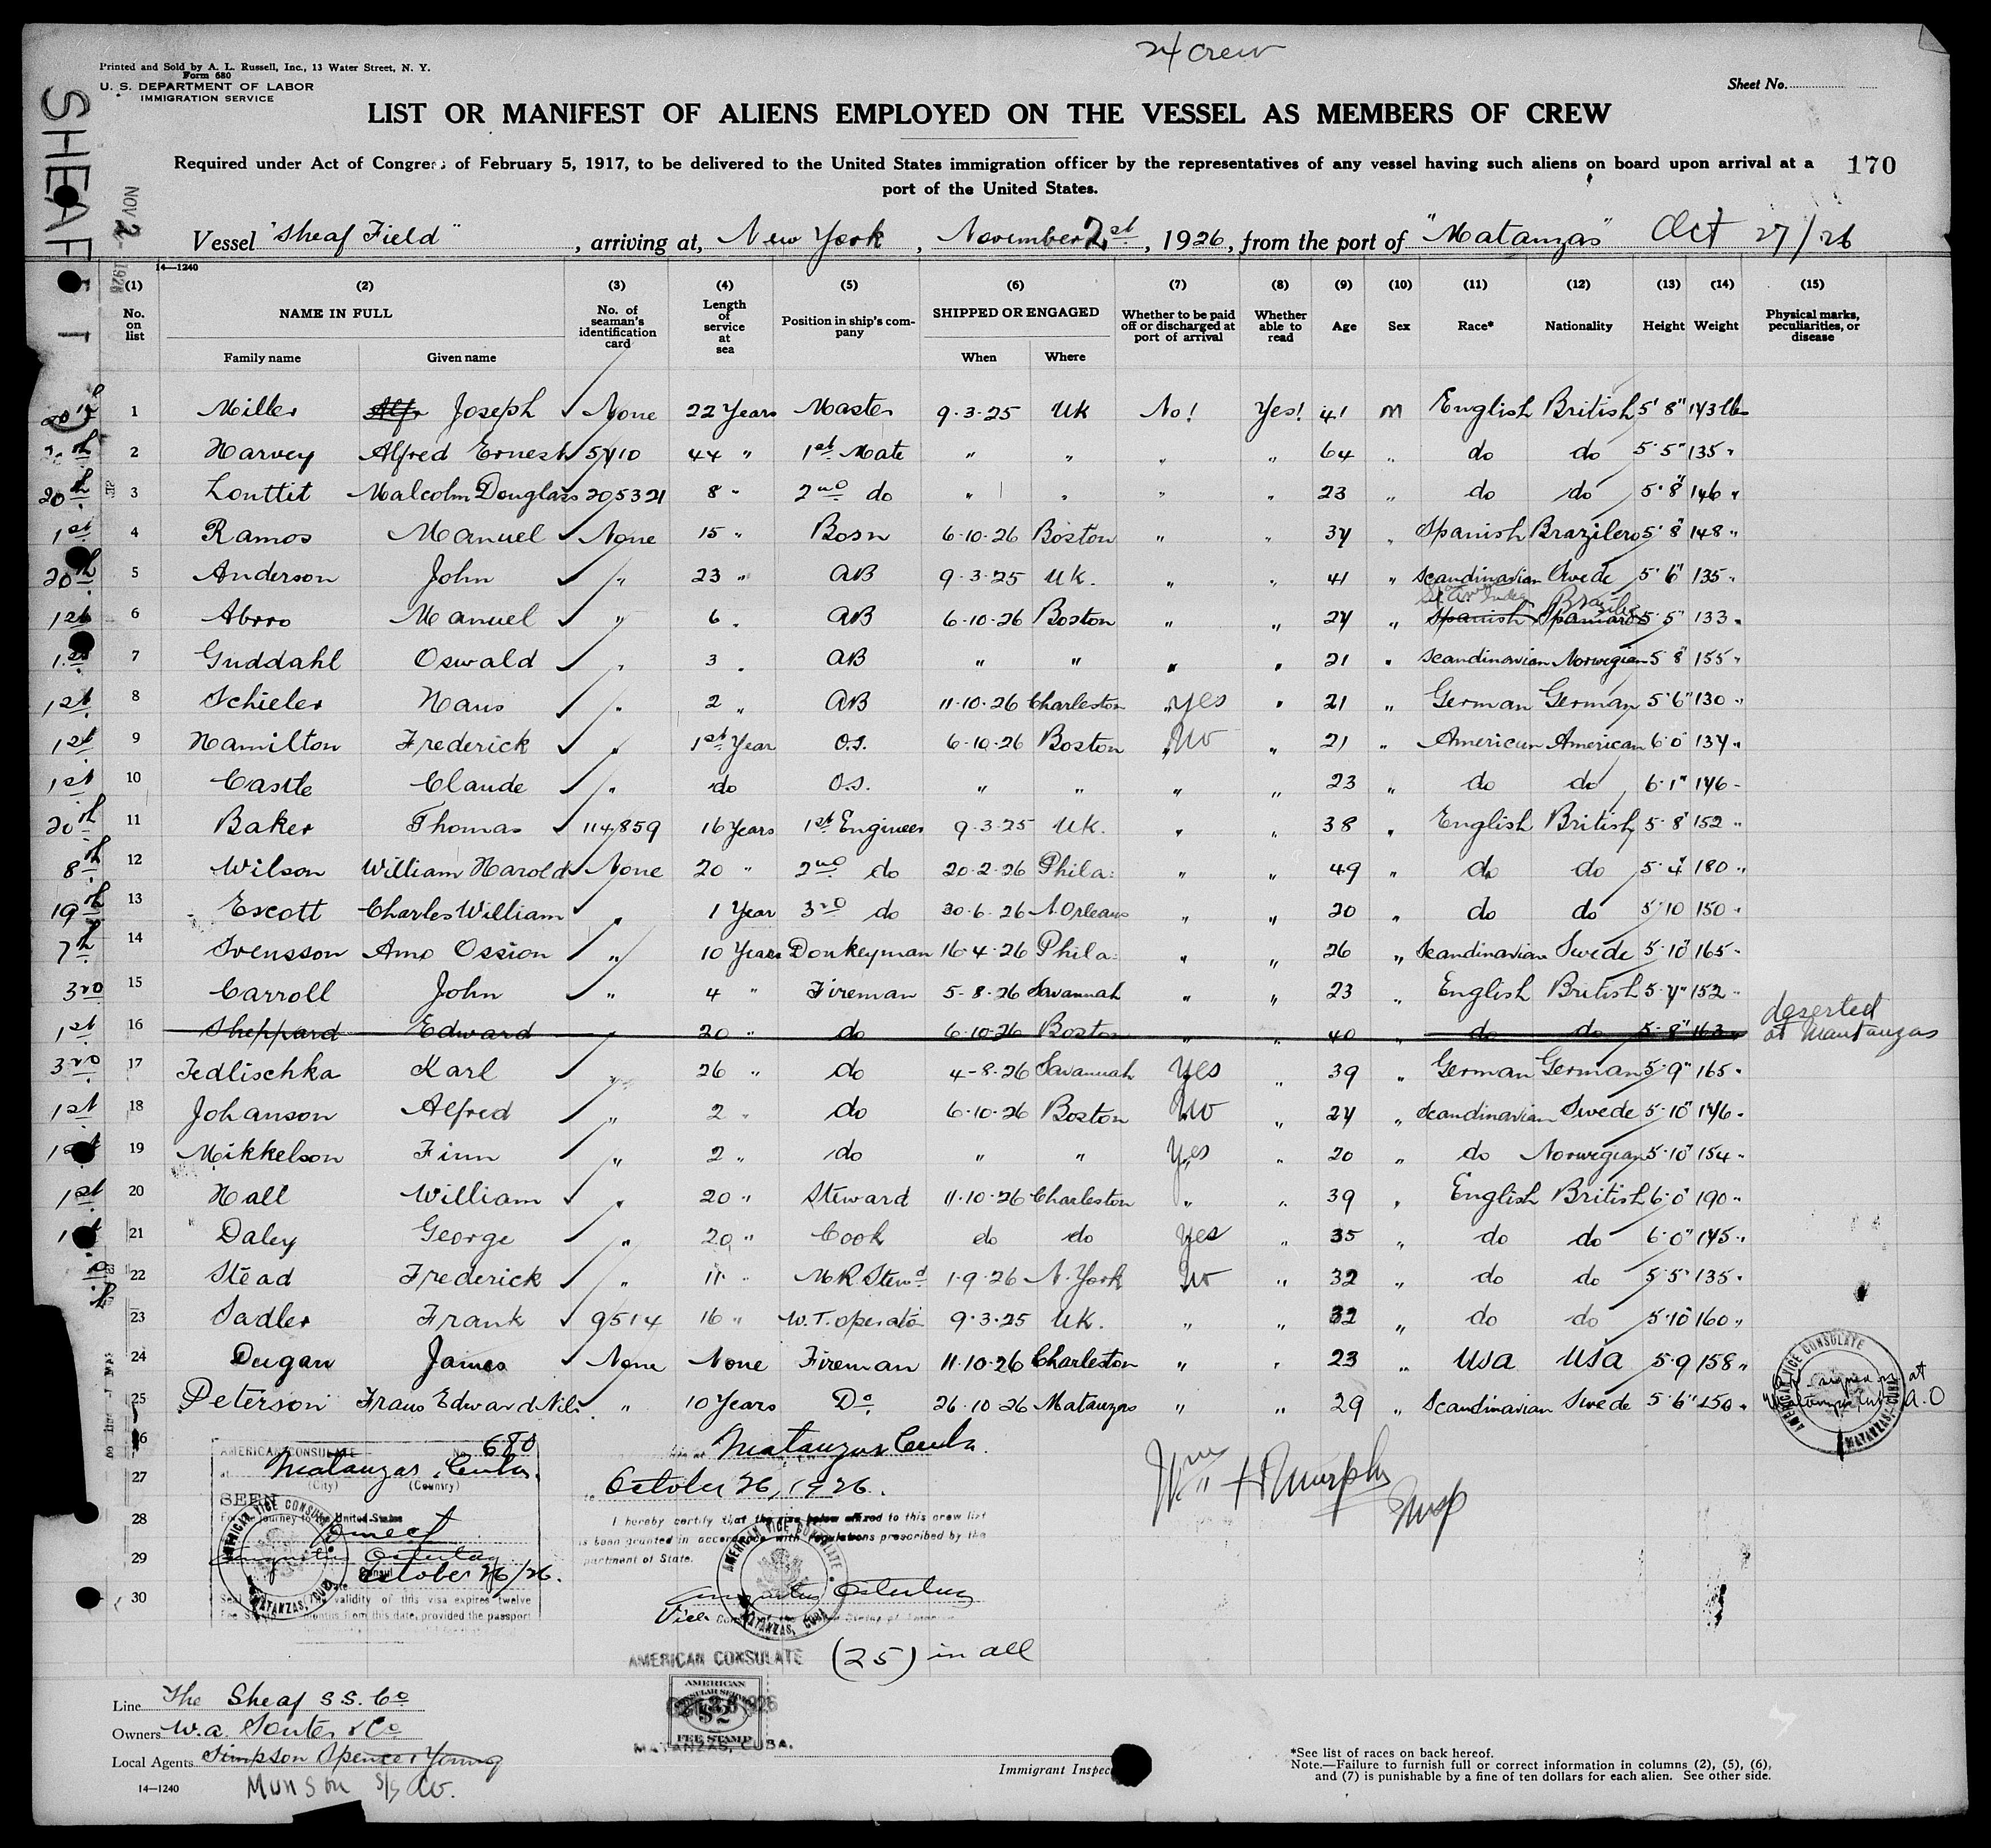 24 crew
Printed and Sold by A. L. Russell, Inc., 13 Water Street, N. Y.
Form 680
U. S. DEPARTMENT OF LABOR
IMMIGRATION SERVICE
Sheet No.
LIST OR MANIFEST OF ALIENS EMPLOYED ON THE VESSEL AS MEMBERS OF CREW
Required under Act of Congress of February 5, 1917, to be delivered to the United States immigration officer by the representatives of any vessel having such aliens on board upon arrival at a
port of the United States.
170
SHEAF
NOV 2 - 1926
Vessel "Sheaf Field", arriving at, New York, November 2st, 1926, from the port of "Matanzas" Oct 27/26
14—1240
(1) (2) (3) (4) (5) (6) (7) (8) (9) (10) (11) (12) (13) (14) (15)
No. on list NAME IN FULL Family name Given name No. of seaman's identification card Length of service at sea Position in ship's company SHIPPED OR ENGAGED When Where Whether to be paid off or discharged at port of arrival Whether able to read Age Sex Race* Nationality Height Weight Physical marks, peculiarities, or disease
20th 1 Miller Alfr Joseph ✓ None 22 Years Master 9.3.25 UK No! Yes! 41 m English British 5'8" 143 lbs
2 Harvey Alfred Ernest 5710 44 " 1st Mate " " " " 64 " do do 5'5" 135 "
20th 3 Louttit Malcolm Douglass 205321 8 " 2nd do " " " " 23 " do do 5'8" 146 "
1st 4 Ramos Manuel ✓ None 15 " Bosn 6-10-26 Boston " " 34 " Spanish Brazilero 5'8" 148 "
20th 5 Anderson John ✓ " 23 " AB 9.3.25 UK. " " 41 " Scandinavian Swede 5'6" 135 "
1st 6 Abrro Manuel ✓ " 6 " AB 6-10-26 Boston " " 24 " Spanish Spaniard Brazilero 5'5" 133 "
1st 7 Guddahl Oswald ✓ " 3 " AB " " " " 21 " Scandinavian Norwegian 5'8" 155 "
1st 8 Schieler Hans ✓ " 2 " AB 11-10-26 Charleston " yes " 21 " German German 5'6" 130 "
1st 9 Hamilton Frederick ✓ " 1st Year O.S. 6-10-26 Boston " No " 21 " American American 6'0" 134 "
1st 10 Castle Claude ✓ " do O.S. " " " " 23 " do do 6'1" 146 "
20th 11 Baker Thomas ✓ 114,859 16 Years 1st Engineer 9.3.25 UK. " " 38 " English British 5'8" 152 "
8th 12 Wilson William Harold ✓ None 20 " 2nd do 20.2.26 Phila: " " 49 " do do 5'4" 180 "
19th 13 Escott Charles William ✓ " 1 Year 3rd do 30.6.26 N.Orleans " " 20 " do do 5'10 150 "
7th 14 Svensson Arno Ossion ✓ " 10 Years Donkeyman 16.4.26 Phila: " " 26 " Scandinavian Swede 5'10" 165 "
3rd 15 Carroll John ✓ " 4 " Fireman 5-8-26 Savannah " " 23 " English British 5'4" 152 "
1st 16 Sheppard Edward " 20 " do 6-10-26 Boston " " 40 " do do 5'8" 163 " deserted at Mantanzas
3rd 17 Tedlischka Karl ✓ " 26 " do 4-8-26 Savannah Yes " 39 " German German 5'9" 165 "
1st 18 Johanson Alfred ✓ " 2 " do 6-10-26 Boston No " 24 " Scandinavian Swede 5'10" 146 "
1st 19 Mikkelson Finn " 2 " do " " Yes " 20 " do Norwegian 5'10" 154 "
1st 20 Hall William ✓ " 20 " Steward 11-10-26 Charleston " " 39 " English British 6'0" 190 "
21 Daley George ✓ " 20 " Cook do do yes " 35 " do do 6'0" 145 "
22 Stead Frederick ✓ " 11 " M.R. Stewd 1.9.26 N.York No " 32 " do do 5'5" 135 "
23 Sadler Frank ✓ 9514 16 " W.T. operator 9.3.25 UK. " " 32 " do do 5'10" 160 "
24 Dugan James ✓ None None Fireman 11-10-26 Charleston " " 23 " USA USA 5.9 158 "
25 Peterson Frans Edward Nils " 10 Years Do 26.10.26 Matanzas " " 29 " Scandinavian Swede 5'6" 150 " signed on at A.O
AMERICAN VICE CONSULATE
MATANZAS, CUBA
26
27
28
29
30
AMERICAN CONSULATE No. 680
at Matanzas, Cuba.
(City) (Country)
SEEN
For the journey to the United States
Augustus Ostertag
Consul
Date October 26/26.
validity of this visa expires twelve
months from this date, provided the passport
AMERICAN VICE CONSULATE
MATANZAS, CUBA
Matanzas Cuba.
October 26, 1926.
I hereby certify that the visa below affixed to this crew list
is been granted in accordance with regulations prescribed by the
partment of State.
Augustus Ostertag
Vice Consul
AMERICAN VICE CONSULATE
MATANZAS, CUBA
Wm H Murphy
Insp
AMERICAN CONSULATE
(25) in all
AMERICAN
CONSULAR SERVICE
$2
FEE STAMP
MATANZAS, CUBA.
Line The Sheaf S S. Co
Owners W. A. Souter & Co
Local Agents Simpson Spence & Young
Munson S/S Co.
14—1240
Immigrant Inspec
*See list of races on back hereof.
Note.—Failure to furnish full or correct information in columns (2), (5), (6),
and (7) is punishable by a fine of ten dollars for each alien. See other side.